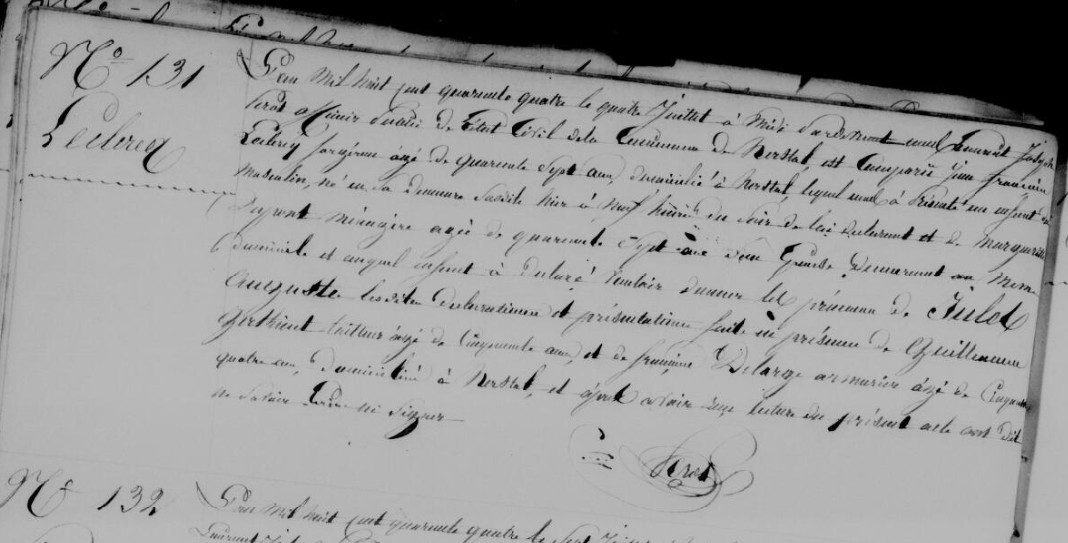 N° 131
Leclercq
L'an mil huit cent quarante quatre le quatre Juillet à Midi Pardevant nous Laurent Joseph
officier Public de l'état Civil de la Commune de Herstal est Comparu
Leclercq âgé de quarante Sept ans, domicilié à Herstal, lequel nous à Présenté un enfant du
masculin, né en sa demeure Susdite hier à neuf heures du Soir de lui déclarant et de Marguerite
ménagère agée de quarante Sept ans Son Epouse demeurant au même
domicile et auquel enfant à déclaré vouloir donner les prénoms de Jules
Auguste lesdites declarations et présentations faite en présence de Guillaume
tailleur âgé de Cinquante ans, et de françois Delarge armurier âgé de Cinquante
quatre ans, domiciliés à Herstal, et après avoir lecture du présent acte ont dit
ne Savoir ni Signer
N° 132
L'an mil huit cent quarante quatre le Sept
Laurent